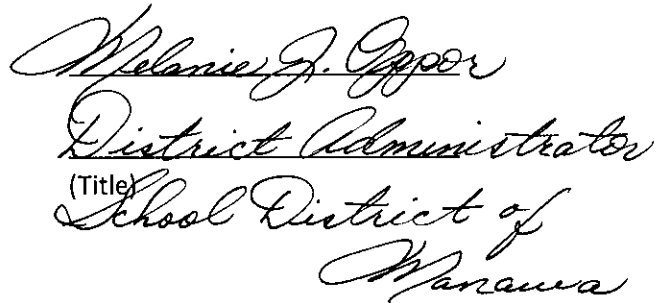 Melanie J. Oppor
District Administrator
(Title)
School District of
Manawa